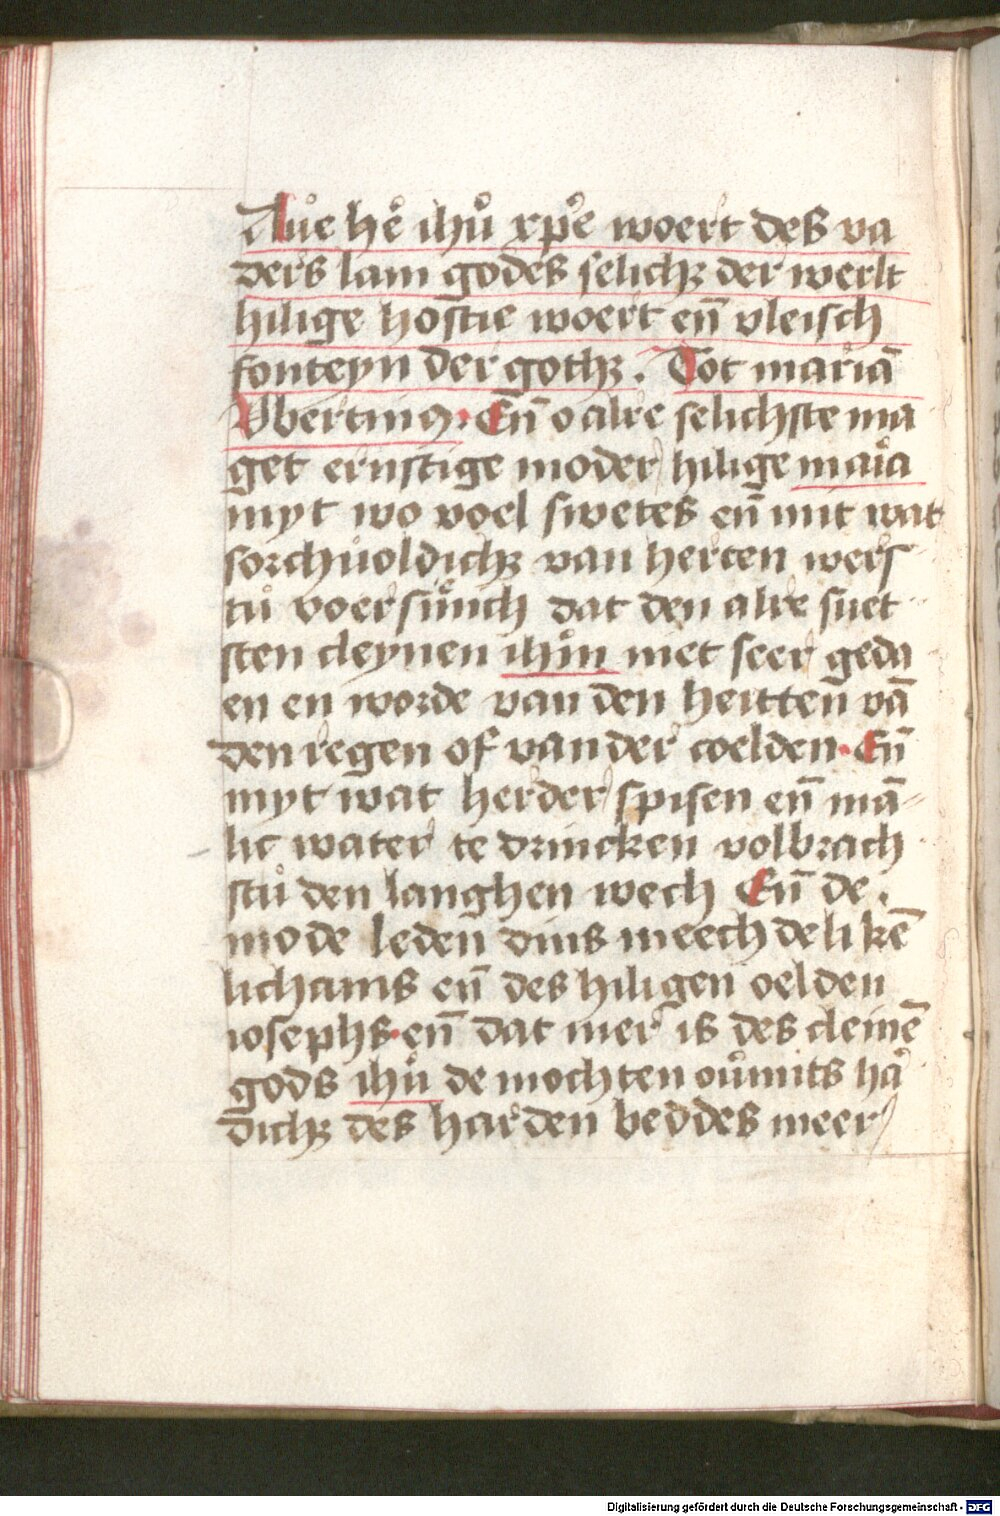 Aůe hē ihů xp̄e woert des va
ders lam godes selichꝫ der werlt
hilige hostie woert en̄ vleisch
fonteyn der gothꝫ. Tot mariā
Vbertinꝯ. En̄ o alre selichste ma
get ernstige moder hilige maͥa
myt wo voel swetes en̄ mit wat
sorchůoldichꝫ van herten wers
tů voersůnich dat den alre suet
sten cleynen ihm̄ niet seer geda
en en worde van den heitten̄ vā
den regen of van der coelden. En̄
myt wat herder spisen en̄ mā⸗
lic water te drincken volbrach
stů den langhen wech En̄ de.
mode leden dins meechdelikē
lichams en̄ des hiligen oelden
iosephs. en̄ dat mer is des cleinē
gods ihů de mochten oůmits ha
dichꝫ des harden beddes meer
Digitalisierung gefördert durch die Deutsche Forschungsgemeinschaft - DFG